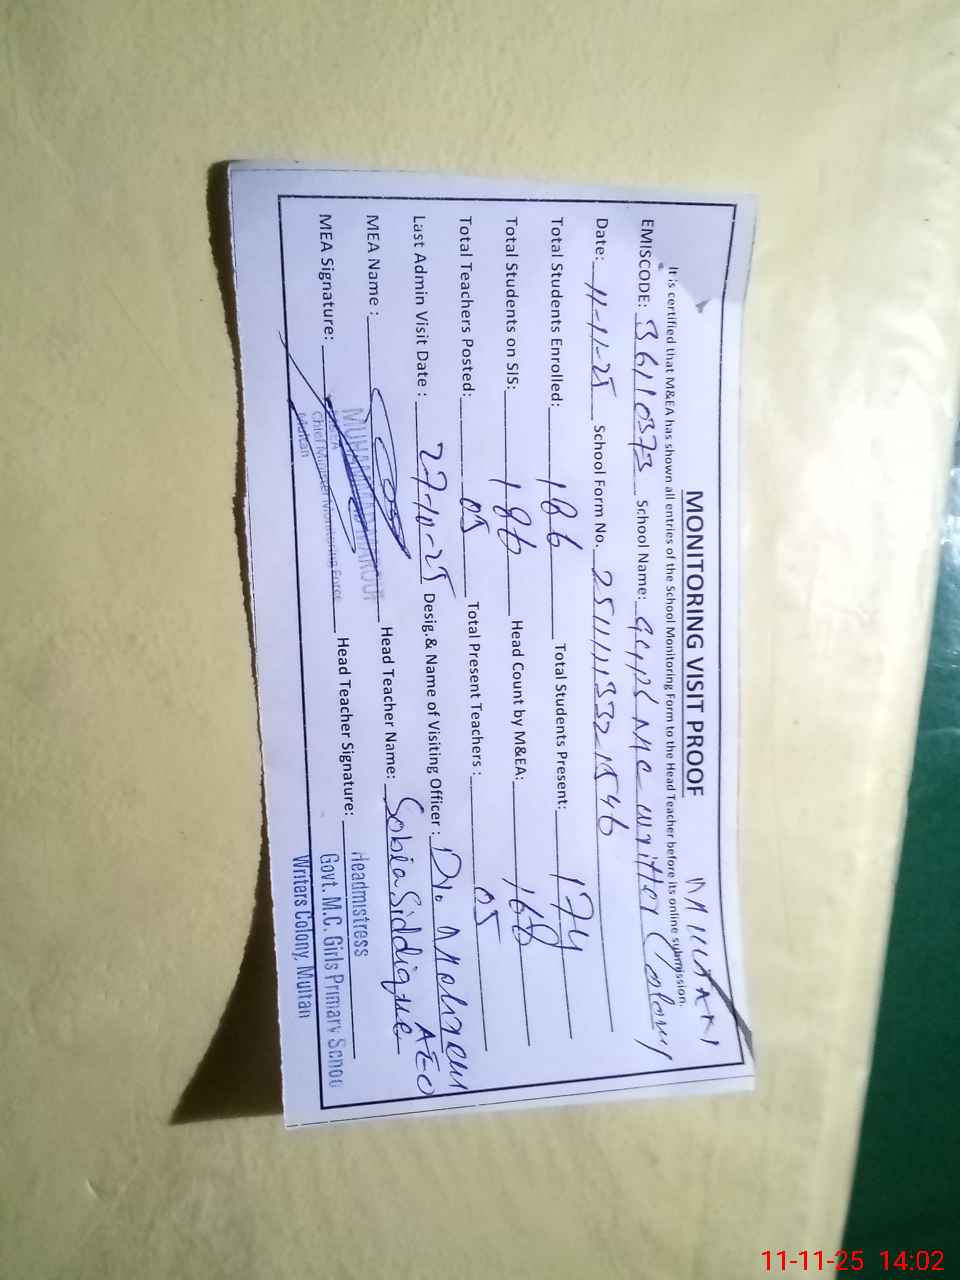 MONITORING VISIT PROOF
It is certified that M&EA has shown all entries of the School Monitoring Form to the Head Teacher before its online submission.
EMISCODE: 36110373 School Name: Writter Colony
Date: 11-11-25 School Form No. 25111113321546
Total Students Enrolled: 186 Total Students Present: 174
Total Students on SIS: 186 Head Count by M&EA: 168
Total Teachers Posted: 05 Total Present Teachers : 05
Last Admin Visit Date : 27-10-25 Desig.& Name of Visiting Officer : AEO
MEA Name : MUHAMMAD Head Teacher Name: Sobia Siddique
MEA Signature: Chief Minister Monitoring Force Multan Head Teacher Signature: Headmistress
Govt. M.C. Girls Primary School
Writers Colony, Multan
11-11-25 14:02